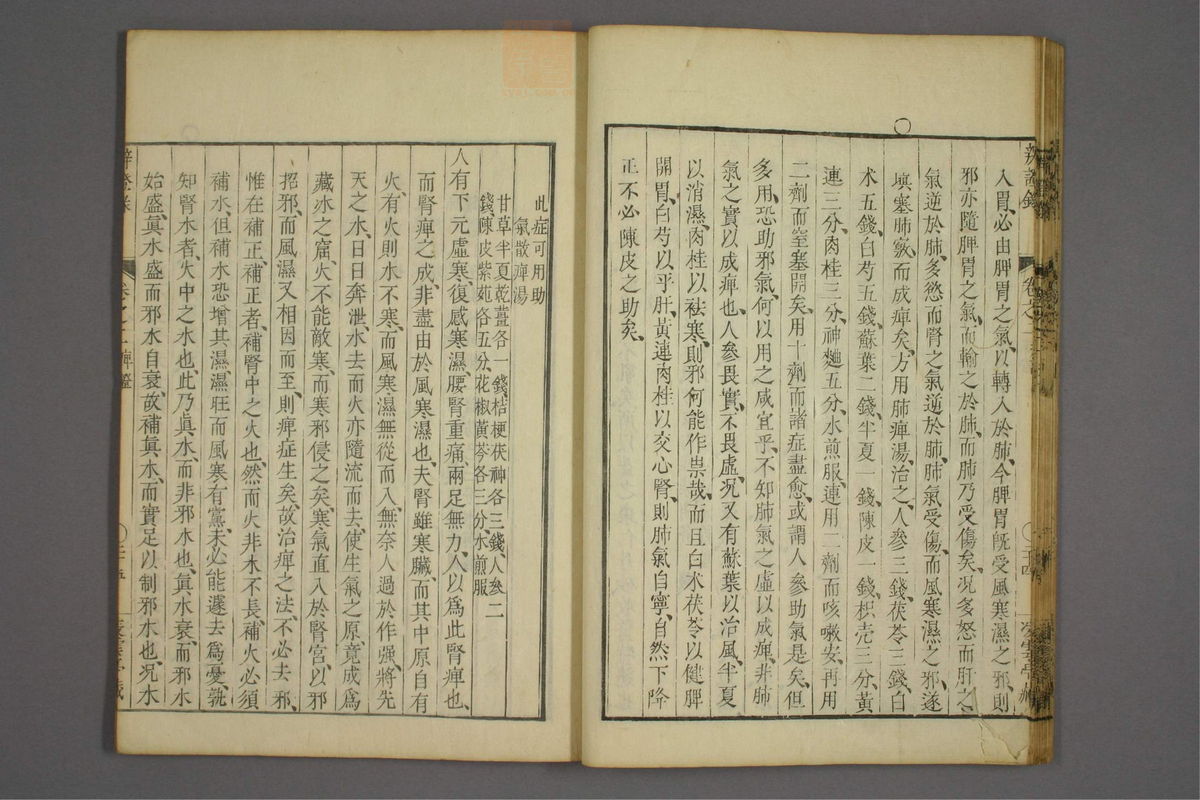 入胃必由脾胃之氣以轉入於肺今脾胃旣受風寒濕之邪則
邪亦隨脾胃之氣而輸之於肺而肺乃受傷矣况多怒而肝之
氣逆於肺多慾而腎之氣逆於肺肺氣受傷而風寒濕之邪遂
填塞肺竅而成痺矣方用肺痺湯治之人參三錢茯苓三錢白
术五錢白芍五錢蘇葉二錢半夏一錢陳皮一錢枳壳三分黃
連三分肉桂三分神麯五分水煎服連用二劑而咳嗽安再用
二劑而窒塞開矣用十劑而諸症盡愈或謂人參助氣是矣但
多用恐助邪氣何以用之咸宜乎不知肺氣之虛以成痺非肺
氣之實以成痺也人參畏實不畏虛况又有蘇葉以治風半夏
以消濕肉桂以祛寒則邪何能作祟哉而且白术茯苓以健脾
開胃白芍以平肝黃連肉桂以交心腎則肺氣自寧自然下降
正不必陳皮之助矣
此症可用助
氣散痺湯
甘草半夏乾薑各一錢桔梗茯神各三錢人參二
錢陳皮紫菀各五分花椒黃芩各三分水煎服
人有下元虛寒復感寒濕腰腎重痛兩足無力人以爲此腎痺也
而腎痺之成非盡由於風寒濕也夫腎雖寒臟而其中原自有
火有火則水不寒而風寒濕無從而入無奈人過於作强將先
天之水日日奔泄水去而火亦隨流而去使生氣之原竟成爲
藏冰之窟火不能敵寒而寒邪侵之矣寒氣直入於腎宮以邪
招邪而風濕又相因而至則痺症生矣故治痺之法不必去邪
惟在補正補正者補腎中之火也然而火非水不長補火必須
補水但補水恐增其濕濕旺而風寒有黨未必能遽去爲憂孰
知腎水者火中之水也此乃眞水而非邪水也眞水衰而邪水
始盛眞水盛而邪水自衰故補眞水而實足以制邪水也况水